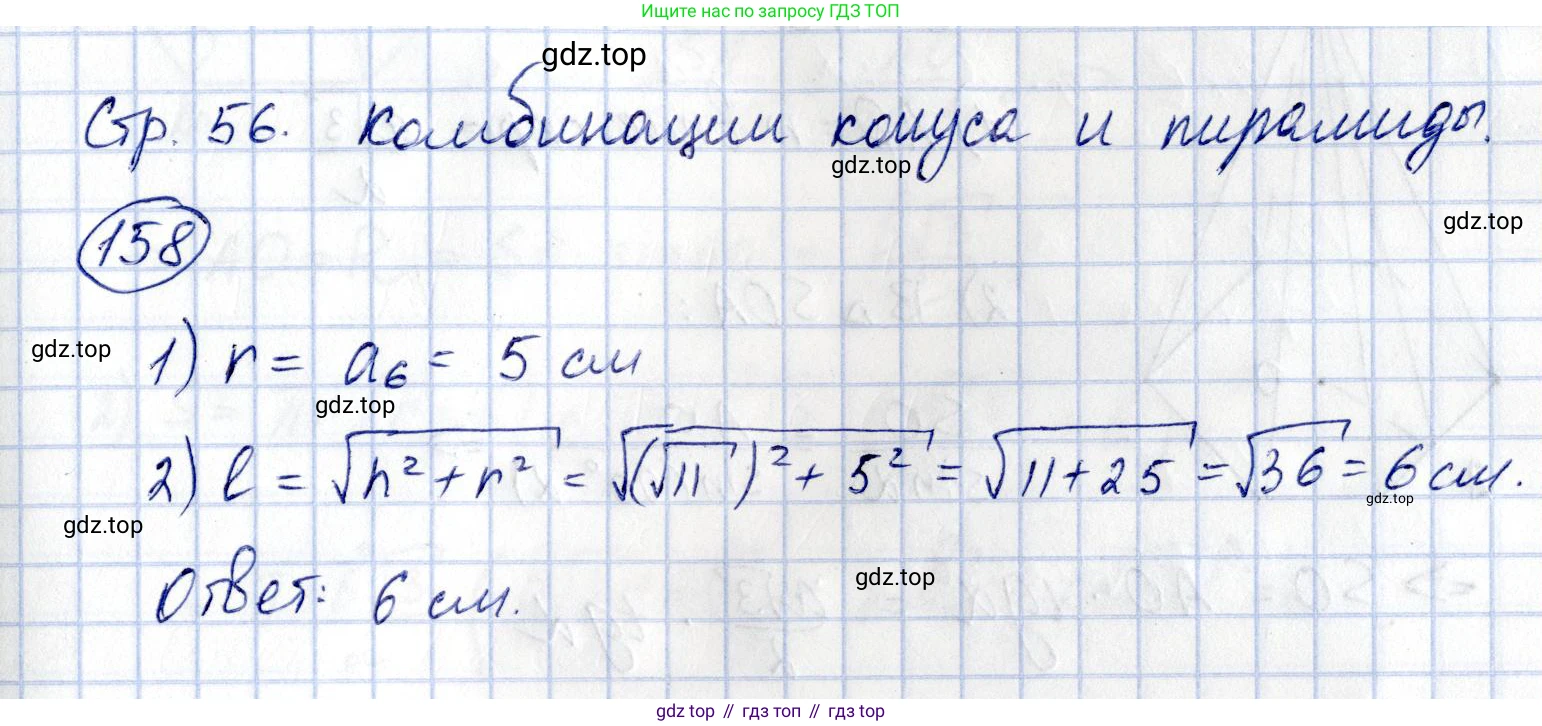 Ищите нас по запросу ГДЗ ТОП
gdz.top
Стр. 56. Комбинации конуса и пирамиды.
gdz.top
gdz.top
158
gdz.top
1) r = a₆ = 5 см
gdz.top
2) l = √(h² + r²) = √((√11)² + 5²) = √(11 + 25) = √36 = 6 см.
gdz.top
gdz.top
gdz.top
Ответ: 6 см.
gdz.top // гдз топ // гдз топ